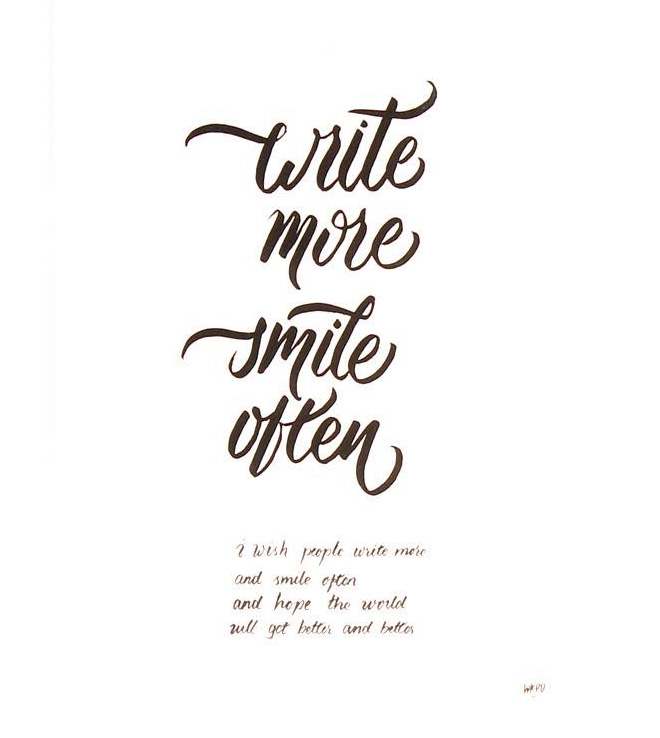 write
more
smile
often
i wish people write more
and smile often
and hope the world
will get better and better